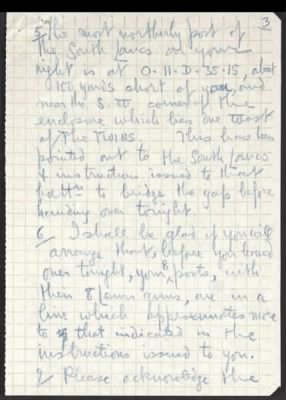 3
5. The most northerly post of
the South Lancs on your
right is at O.11.D.35.15, about
100 yards short of you, and
near the S. corner of the
enclosure which lies due east
of The TWINS. This has been
pointed out to the South Lancs
& instructions issued to that
battn to bridge the gap before
handing over tonight.
6. I shall be glad if you will
arrange that, before you hand
over tonight, your 8 posts, with
their 8 Lewis guns, are in a
line which approximates more
to that indicated in the
instructions issued to you.
Please acknowledge the